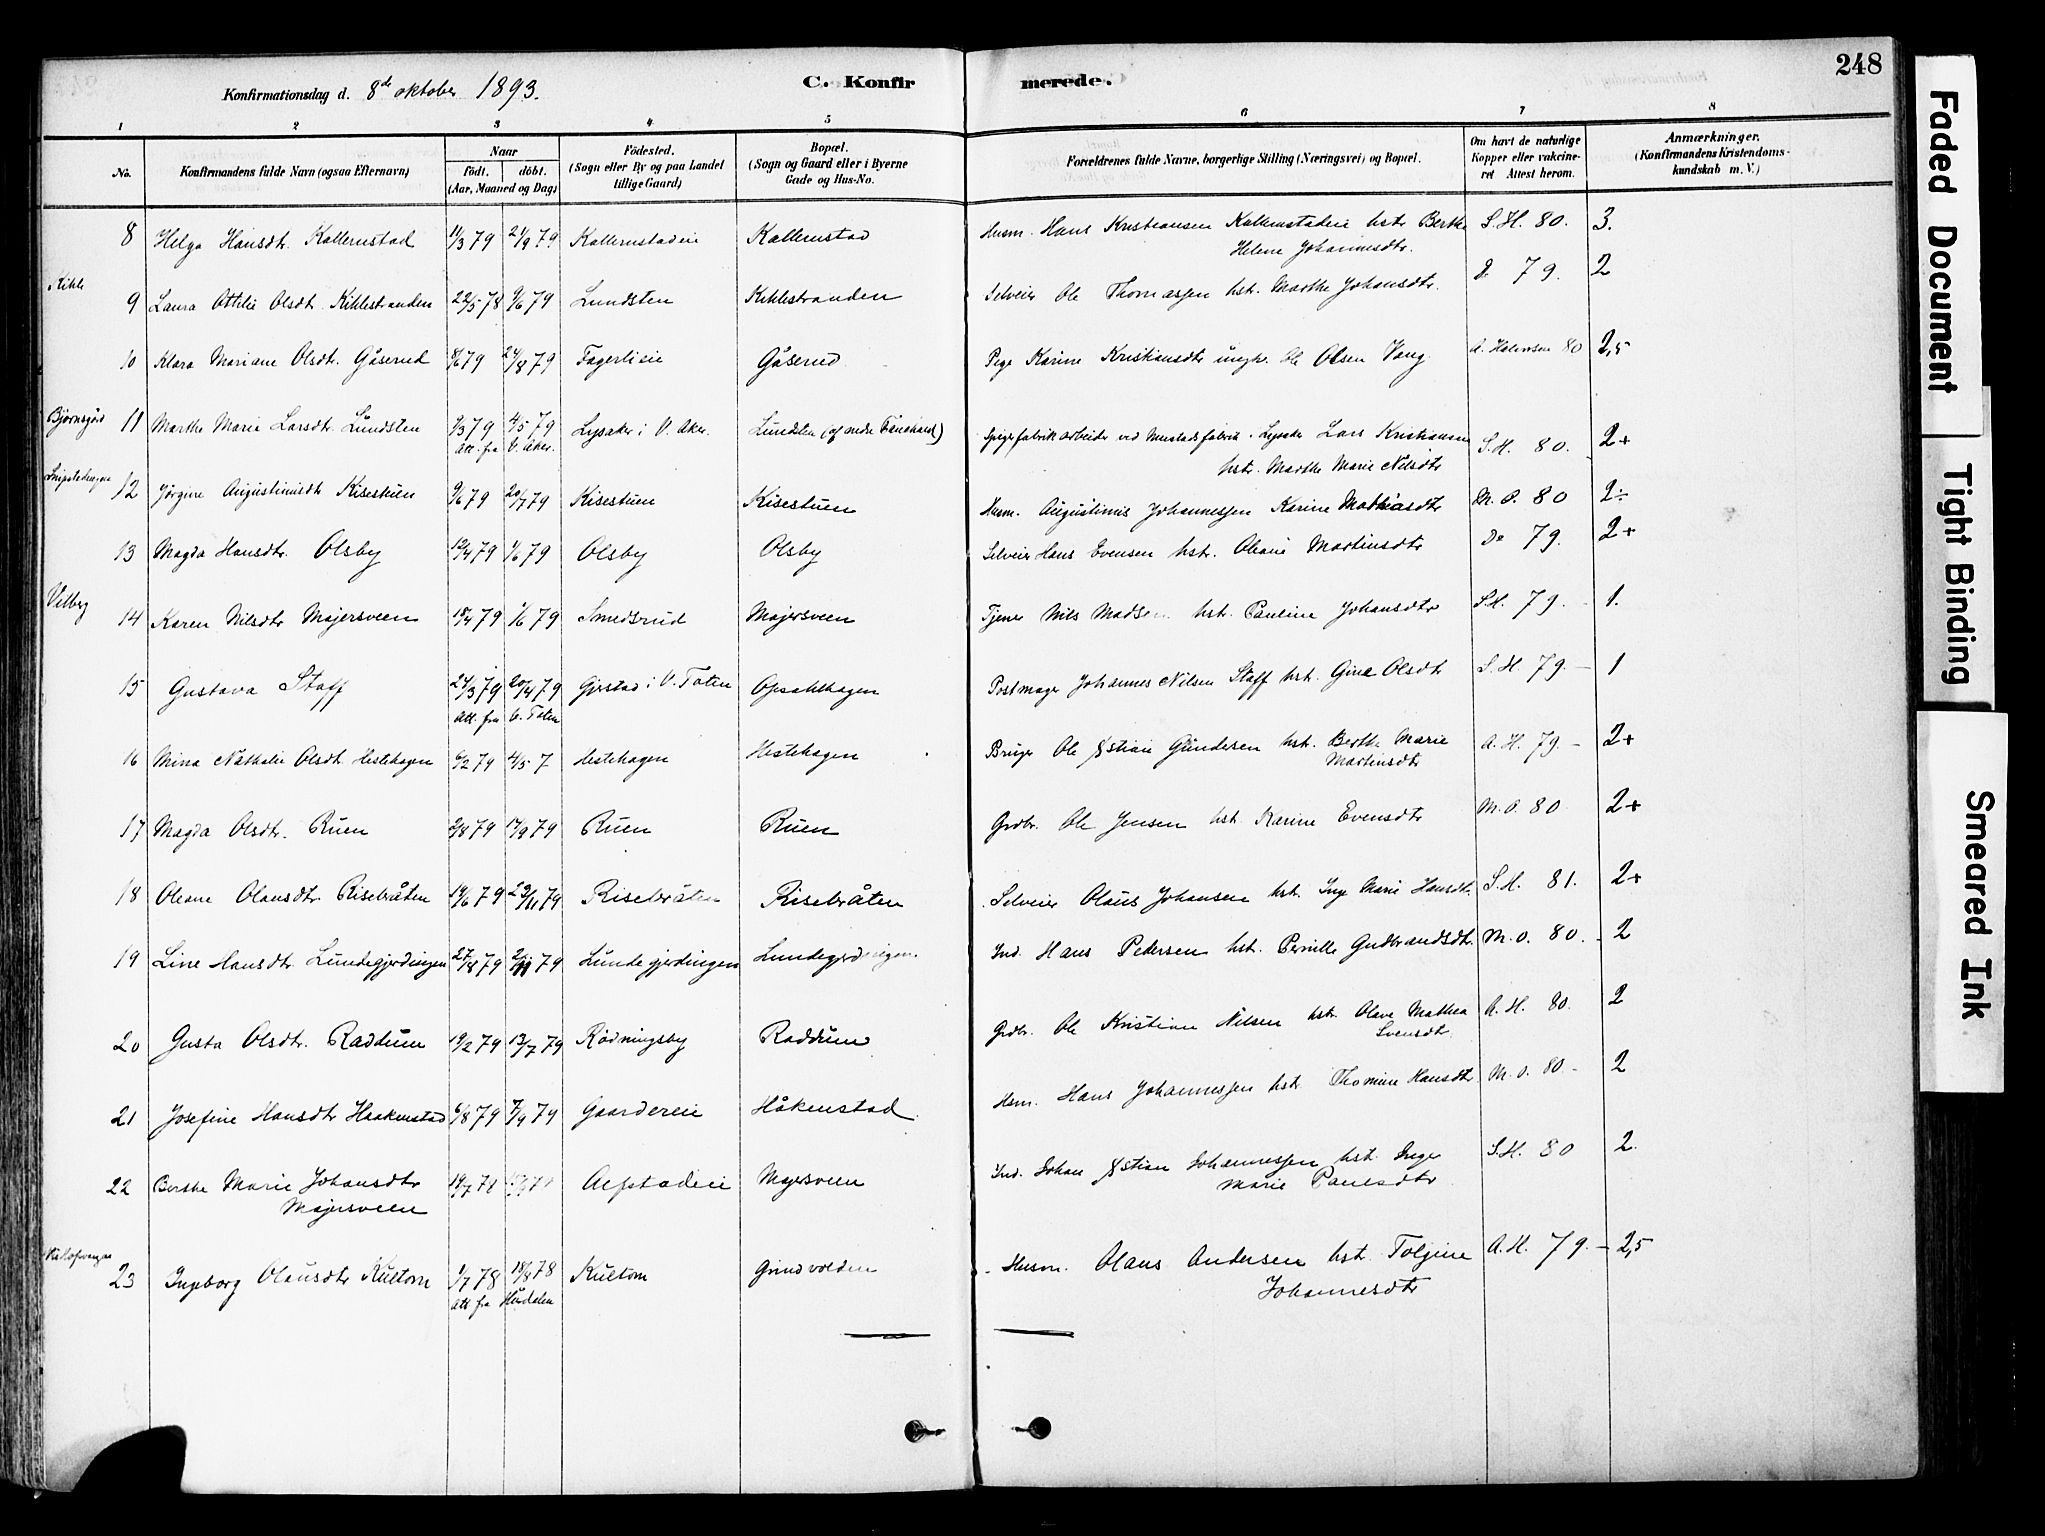 248
Konfirmationsdag d. 8de oktober 1893. C. Konfirmerede.
1 2 3 4 5 6 7 8
No. Konfirmandens fulde Navn (ogsaa Efternavn) Naar födt. döbt. (Aar, Maaned og Dag) Födested. (Sogn eller By og paa Landet tillige Gaard) Bopæl. (Sogn og Gaard eller i Byerne Gade og Hus-No. Forældrenes fulde Navne, borgerlige Stilling (Næringsvei) og Bopæl. Om havt de naturlige Kopper eller vakcineret Attest herom. Anmærkninger. (Konfirmandens Kristendomskundskab m. V.)
8 Helga Hansdtr. Kallerustad 11/3 79 21/9 79 Kallerustadeie Kallerustad Husm. Hans Kristiansen Kallerustadeie hstr Berthe S. H. 80. 3.
Helene Johannesdtr.
Kihle
9 Laura Ottilie Olsdtr. Kihlestranden 22/5 78 9/6 79 Lundsten Kihlestranden Selveier Ole Thomassen hst. Marthe Johansdtr. 79. 2
10 Klara Mariane Olsdtr. Gåserud 8/6 79 24/8 79 Fagerlieie Gåserud Pige Karine Kristiansdtr ungkr. Ole Olsen Vang A. Halvorsen 80 2,5
11 Marthe Marie Larsdtr. Lundsten 9/3 79 4/5 79 Lysaker i V. Aker. Lundsten Spigerfabrikarbeider ved Mustads fabrik. Lysaker Lars Kristiansen S. H. 80. 2+
Att. fra V. Aker. hst. Marthe Marie Nilsdtr
12 Jørgine Augustinusdtr Kisestuen 9/6 79 20/7 79 Kisestuen Kisestuen Husm. Augustinus Johannessen Karine Mathiasdtr M. O. 80 2÷
13 Magda Hansdtr. Olsby 12/4 79 1/6 79 Olsby Olsby Selveier Hans Evensen hst. Oleane Martinsdtr Do 79. 2+
Vilberg
14 Karen Nilsdtr Majersveen 18/4 79 1/6 79 Smedsrud Majersveen Tjener Nils Madsen hst. Pauline Johansdtr S. H. 79. 1.
15 Gustava Staff 24/3 79 20/4 79 Gjestad i V. Toten Opsahlhagen Postmager Johannes Nilsen Staff hst. Gina Olsdtr S. H. 79. 1
Att. fra V. Toten
16 Mina Nathalie Olsdtr Hestehagen 6/2 79 4/5 7 Hestehagen Hestehagen Bruger Ole Kristian Gundersen hst. Berthe Marie A. H. 79. 2+
Martinsdtr
17 Magda Olsdtr. Ruen 2/8 79 17/9 79 Ruen Ruen Grdbr. Ole Jensen hst. Karine Evensdtr M. O. 80 2+
18 Oleane Olausdtr. Risebråten 14/6 79 23/11 79 Risebråten Risebråten Selveier Olaus Johansen hst. Inge Marie Hansdtr. S. H. 81. 2+
19 Line Hansdtr. Lundegjerdingen 27/8 79 2/11 79 Lundegjerdingen Lundegjerdingen Ind. Hans Pedersen hst. Pernille Gudbrandsdtr. M. O. 80. 2
20 Gusta Olsdtr. Raddum 19/2 79 13/7 79 Rødningsby Raddum Grdbr. Ole Kristian Nilsen hst. Olave Mathea A. H. 80. 2
Svensdtr.
21 Josefine Hansdtr Haakenstad 6/8 79 7/9 79 Gaardereie Håkenstad Hsm. Hans Johannessen hst. Thomine Hansdtr M. O. 80 2
22 Berthe Marie Johansdtr 19/7 78 Majersveen Ind. Johan Kristian Johannessen hst. Inge S. H. 80 2.
Majersveen Marie Paulsdtr
23 Ingeborg Olausdtr Kultom 1/7 78 18/8 78 Kultom Grindvolden Husm. Olaus Andersen hst. Tolgine A. H. 79. 2,5
Att fra Hurdalen Johannesdtr
Faded Document
Tight Binding
Smeared Ink